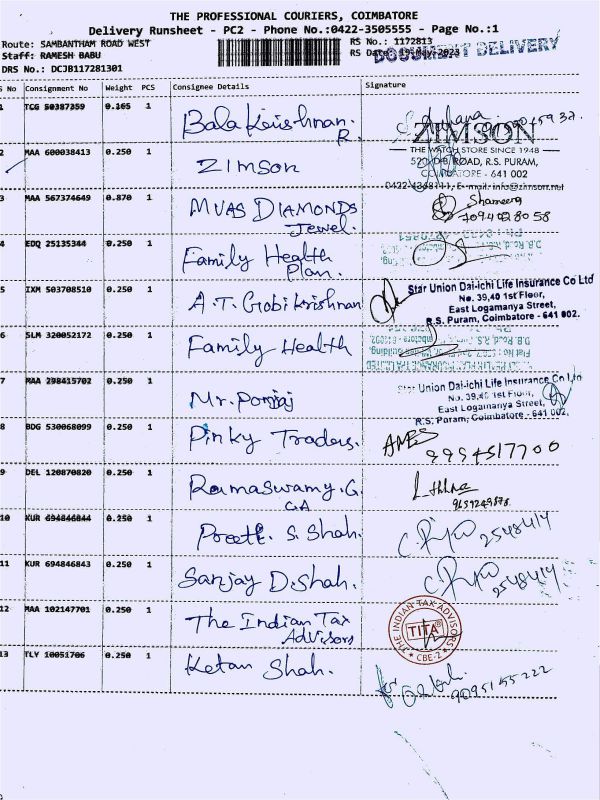 THE PROFESSIONAL COURIERS, COIMBATORE
Delivery Runsheet - PC2 - Phone No.:0422-3505555 - Page No.:1
Route: SAMBANTHAM ROAD WEST
RS No.: 1172813
Staff: RAMESH BABU
RS Date: 19-May-2023
DOCUMENT DELIVERY
DRS No.: DCJB117281301
S No Consignment No Weight PCS Consignee Details Signature
1 TCG 50387359 0.165 1 Bala Krishnan.
R.
2 MAA 600038413 0.250 1 Zimson
ZIMSON
THE WATCH STORE SINCE 1948
ROAD, R.S. PURAM,
COIMBATORE - 641 002
E-mail: info@zimson.net
3 MAA 567374649 0.870 1 MVAS DIAMONDS
Jewel.
Shameera
7094028058
4 EDQ 25135344 0.250 1 Family Health
Plan.
5 IXM 503708510 0.250 1 A.T. Gobi Krishnan
Star Union Dai-ichi Life Insurance Co Ltd
No. 39,40 1st Floor,
East Logamanya Street,
R.S. Puram, Coimbatore - 641 002.
6 SLM 320052172 0.250 1 Family Health
7 MAA 298415702 0.250 1 Mr.
Star Union Dai-ichi Life Insurance Co Ltd
No. 39,40 1st Floor,
East Logamanya Street,
R.S. Puram, Coimbatore - 641 002.
8 BDG 530068099 0.250 1 Pinky Traders.
9994517700
9 DEL 120870820 0.250 1 Ramaswamy.G.
CA
10 KUR 694846844 0.250 1 Preeti. S. Shah.
2548414
11 KUR 694846843 0.250 1 Sanjay D. Shah.
2548414
12 MAA 102147701 0.250 1 The Indian Tax
Advisors
THE INDIAN TAX ADVISORS
TITA
CBE-2
13 TLY 10051706 0.250 1 Ketan Shah.
9095155222